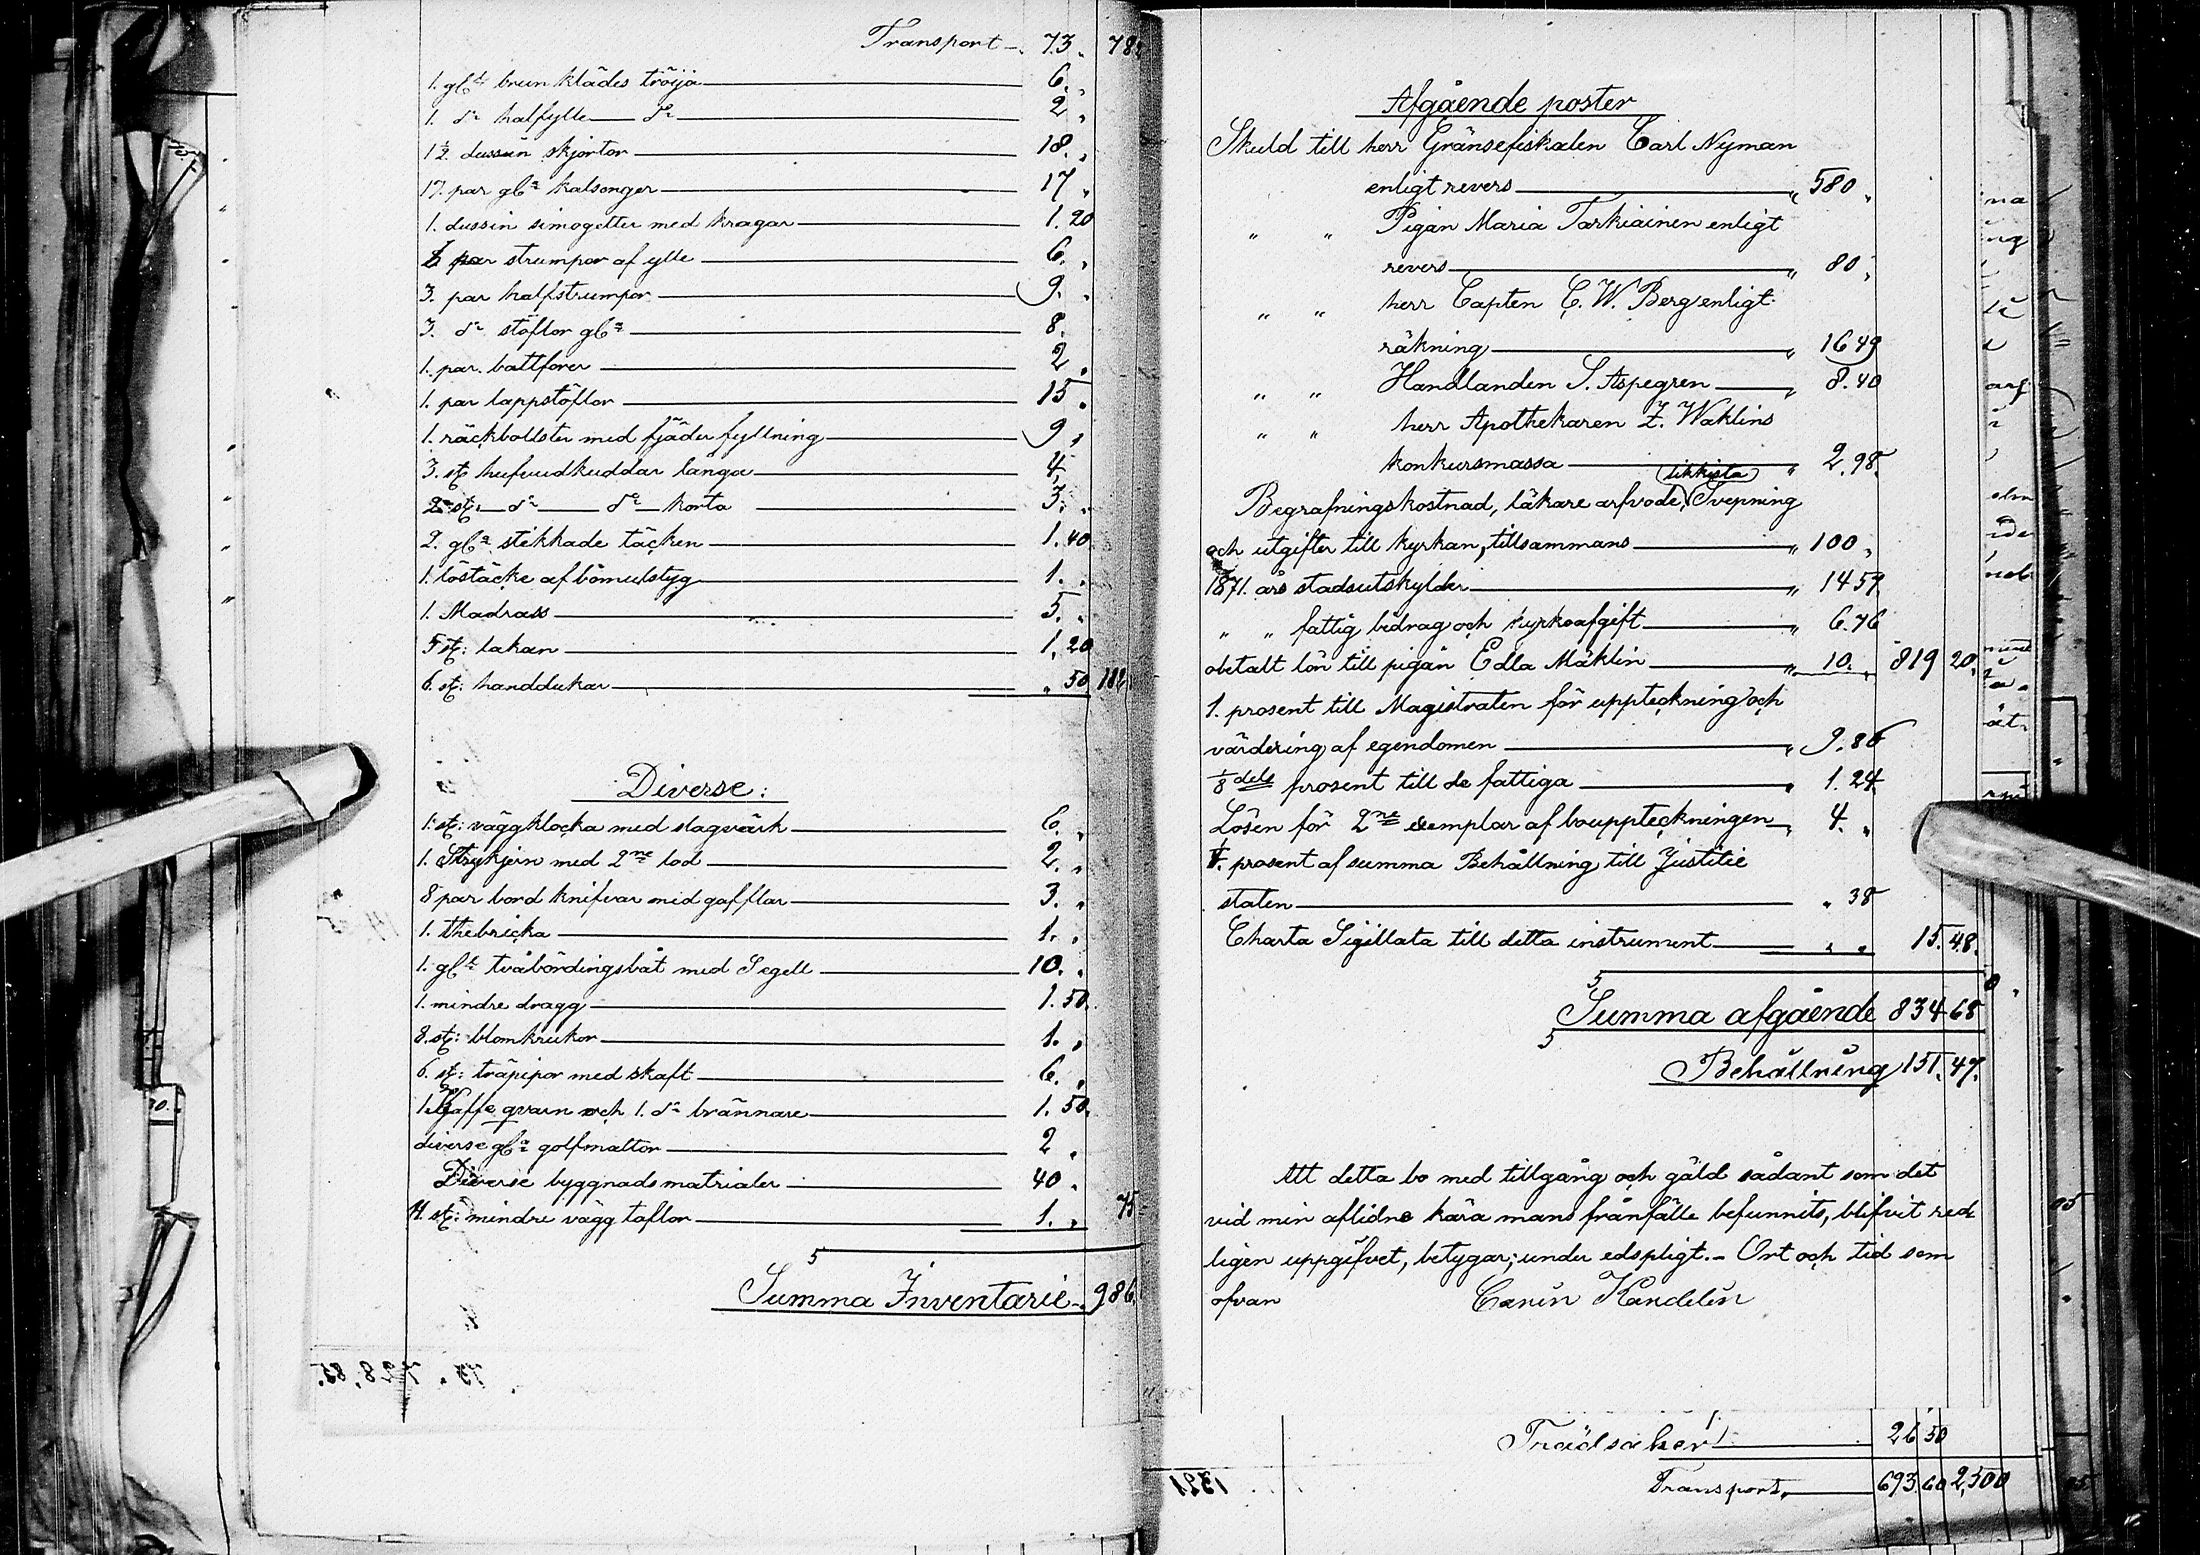 Transport 73. 78
1. gl:t brun klädes tröija 6.
1. d:o halfylle d:o 2
1½ dussin skjortor 18.
17. par gl:a kalsonger 17
1. dussin simogetter med kragar 1. 20
6 par strumpor af ylle 6.
3. par halfstrumpor 9.
3. d:o stöflor gl:a 8.
1. par. battforer 2
1. par lappstöflor 15.
1. räckbollster med fjäder fyllning 9,
3. st hufvudkuddar långa 4,
2 st: d:o d:o korta 3.
2. gl:a stikkade täcken 1. 40
1. löstäcke af bömulstyg 1.
1. Madrass 5.
5 st: lakan 1, 20
6. st: handdukar 50 182
Diverse:
1. st: väggklocka med slagvärk 6.
1. Strykjern med 2ne lod 2.
8 par bord knifvar med gafflar 3.
1. thebricka 1.
1. gl:t tvåbördingsbåt med Segell 10.
1. mindre dragg 1. 50.
8. st: blomkrukor 1.
6. st: träpipor med skaft 6.
1. Kaffe qvarn och 1. d:o brännare 1. 50.
diverse gl:a golfmattor 2
Diverse byggnadsmatrialer 40.
4. st: mindre vägg taflor 1. 75
Summa Inventarie 986.
Afgående poster
Skuld till herr Gränsefiskalen Carl Nyman
enligt revers " 580
" " Pigan Maria Tarkiainen enligt
revers " 80
" " herr Capten C. W. Berg enligt
räkning " 16 49
" " Handlanden S. Aspegren " 8. 40
" " herr Apothekaren Z. Waklins
konkursmassa " 2. 98.
likkista
Begrafningskostnad, läkare arfvode, Svepning
och utgifter till kyrkan, tillsammans " 100
1871. års stadsutskylder " 14 57
" " fattig bidrag och kyrkoafgift " 6. 76
obetalt lön till pigan Edla Mäklin " 10. 819 20.
1. prosent till Magistraten för uppteckning och
värdering af egendomen " 9. 86
1/8 dels prosent till de fattiga 1. 24
Lösen för 2ne exemplar af bouppteckningen 4.
¼. prosent af summa Behållning till Justitie
staten " 38
Charta Sigillata till detta instrument " " 15. 48.
Summa afgående 834 68
Behållning 151. 47.
Att detta bo med tillgång och gäld sådant som det
vid min aflidne kära mans frånfälle befunnits, blifvit red-
ligen uppgifvet, betygar; under edspligt. - Ort och tid som
ofvan Carin Kandelin
Trädsaker 26 50
Transport, 693. 60 2,500